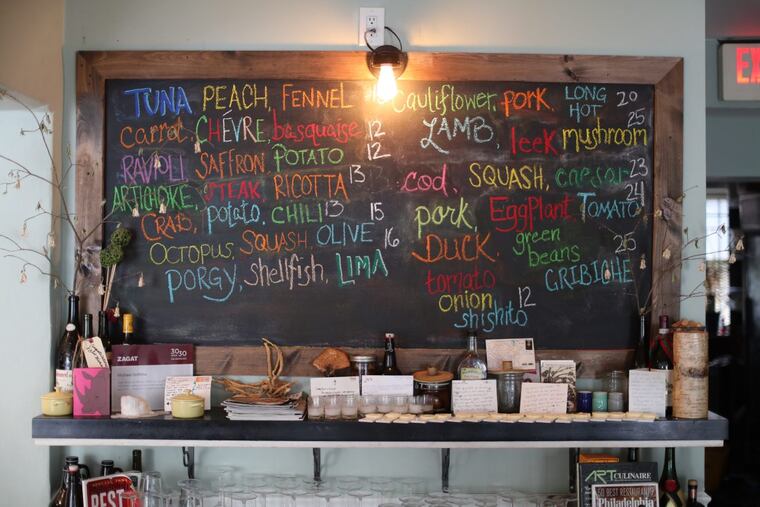 TUNA PEACH, FENNEL
carrot, CHÉVRE, basquaise 12
RAVIOLI SAFFRON POTATO 12
ARTICHOKE, STEAK, RICOTTA 13
CRAB, potato, CHILI 13 15
OCTOPUS, SQUASH, OLIVE 16
PORGY, shellfish, LIMA
cauliflower, pork, LONG HOT 20
LAMB, leek mushroom 25
cod, SQUASH, caesar 23
pork, EggPlant, TOMATO 24
DUCK, green beans 25
tomato GRIBICHE
onion 12
shishito
EX
ZAGAT
30 30
BEST
ART CULINAIRE
50 BEST RESTAURANTS
Philadelphia